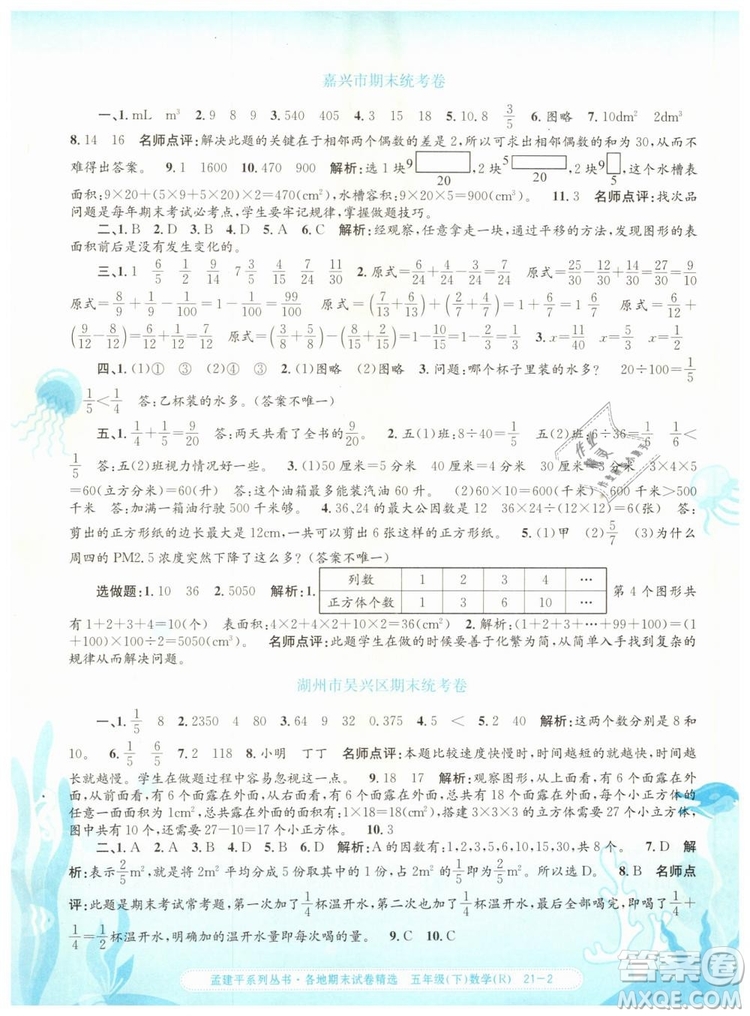 嘉兴市期末统考卷
一、1. mL m³ 2. 9 8 9 3. 540 405 4. 3 15 18 5. 8 3/5 6. 图略 7. 2dm² 2dm³
8. 14 16 名师点评:解决此题的关键在于相邻两个偶数的差是2,所以可以求出相邻的偶数的和为30,从而不
难得出答案。 9. 1 1600 10. 470 900 解析:选1块9 20,2块5 20,2块5 9,这个水槽表
面积:9×20+(5×9+5×20)×2=470(cm²),水槽容积:9×20×5=900(cm³)。 11. 3 名师点评:找次品
问题是每年期末考试必考点,学生要牢记规律,掌握做题技巧。
二、1. B 2. D 3. B 4. D 5. A 6. C 解析:经观察,任意拿走一块,通过平移的方法,发现图形的表
面积前后是没有发生变化的。
三、1. 1 6/5 1/2 9/14 7 3/5 7/24 11/30 2. 原式=6/24+9/24-2/24=13/24 原式=
原式=8/9+1/9-1/100=1-1/100=99/100 原式=(7/13+6/13)-(1/3+2/3)=1-1=0
9/12-8/12+6/12=7/12 原式=(8/10+2/10)-(1/3+1/3)=1-2/3=1/3 3.
四、1. (1)① ③ (2)图略 2. (1)图略 (2)图略 3. 问题:哪个杯子里装的水多? 20÷100=1/5
1/5<1/4 答:乙杯装的水多。(答案不唯一)
五、1. 1/4+1/5=9/20 答:两天共看了全书的9/20。 2. 五(1)班:8÷40=1/5 五(2)班:6÷
答:五(2)班视力情况好一些。 3. (1)50厘米=5分米 30厘米=3分米 40厘米=4分米
=60(立方分米)=60(升) 答:这个油箱最多能装汽油60升。 (2)60÷12×100=500(千米)>
答:这个油箱装满油够行驶500千米。 4. 36,24的最大公因数是12 36×24÷(12×12)=6(张) 答:
剪出的正方形纸的边长最大是12cm,一共可以剪6张这样的正方形纸。 5. (1)甲 (2)5/7 (3)为什么
周四的PM2.5浓度突然下降了这么多?(答案不唯一)
选做题:1. 10 36 2. 5050 解析:1. 列数 1 2 3 4 … 正方体个数 1 3 6 10 … 第4个图形共
有1+2+3+4=10(个) 有1+2+3+4+5+6+7+8=36(个) 2. 解析:(1+2+3+…+98+99+100)=(1
+100)×100÷2=5050(cm²) 名师点评:此题学生在做的时候要善于化繁为简,从简单入手找到复杂的
规律从而解决问题。
湖州市吴兴区期末统考卷
一、1. 1/5 8 2. 2350 4 80 3. 1/8 32 0.375 4. 5 < 5. 2 80 解析:这两个数分别是8和
10。 6. 4/5 1/5 7. 2 118 8. 小明 丁丁 名师点评:本题比较速度快慢时,时间越短的就越快,时间越
长就越慢。学生在做题过程中容易忽略这个问题。 9. 18 17 解析:观察图形,有6个面露在外面,每
面面积为1cm²,所以露在外面的面积有:1×18=18(cm²),大正方体至少有3×3×3=27个小立方体,
图中共有10个,所以至少还需要27-10=17个小正方体。 10. 3
二、1. A 2. B 3. B 4. D 5. C 6. A 解析:A的因数有1,2,4,8,16,一共5个,所以选A。 7. D 解析:
2/5m²表示2个1/5m²,就是将2m²平均分成5份取其中的1份,占2m²的1/5,所以选D。 8. B 名师点
评:此题是期末考试常考题,第一次加了1/4杯温开水,第二次加了1/4杯温开水,最后全部喝完,即喝了1/4
+1/4=1/2杯温开水,明确加的温开水就是喝的温开水。 9. C 10. C
孟建平系列丛书·各地期末试卷精选 五年级(下)数学(R) 21-2
答案圈
MXQE.COM